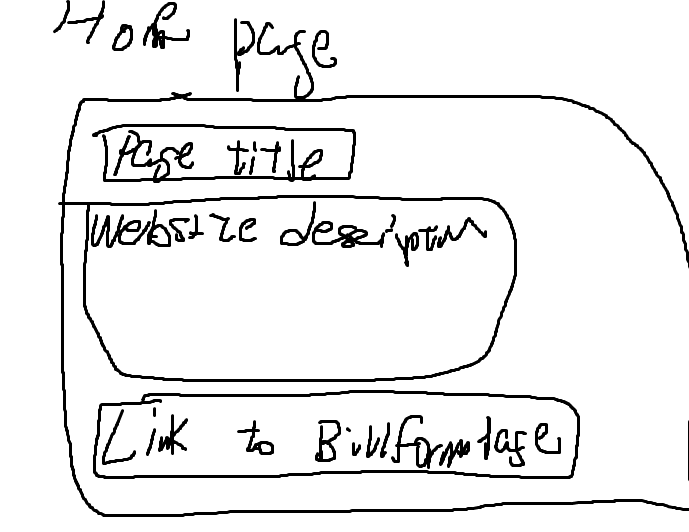 Home page
Page title
Website description
Link to Billform Page